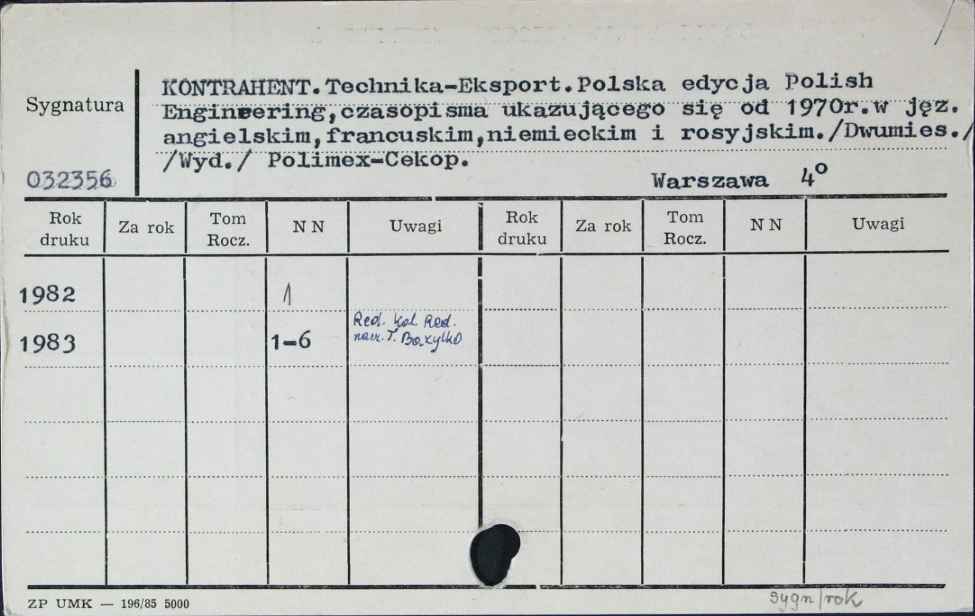 KONTRAHENT.Technika-Eksport.Polska edycja Polish
Sygnatura
Engineering,czasopisma ukazującego się od 1970r.w jęz.
angielskim,francuskim,niemieckim i rosyjskim./Dwumies./
/Wyd./ Polimex-Cekop.
032356 Warszawa 4º
Rok druku Za rok Tom Rocz. NN Uwagi Rok druku Za rok Tom Rocz. NN Uwagi
1982 1
Red. kol. Red.
1983 1-6 T. Boxyłko
ZP UMK — 196/85 5000
sygn/rok